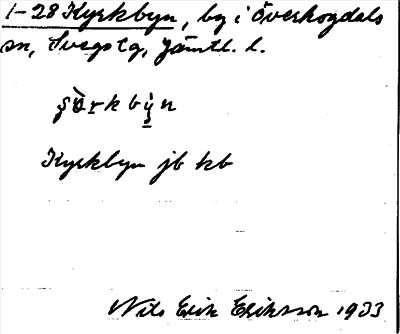 1-28 Kyrkbyn, by i Överhogdals
sn, Svegs tg, Jämtl. l.
Kyrkbyn jb kb
Nils Erik Eriksson 1933